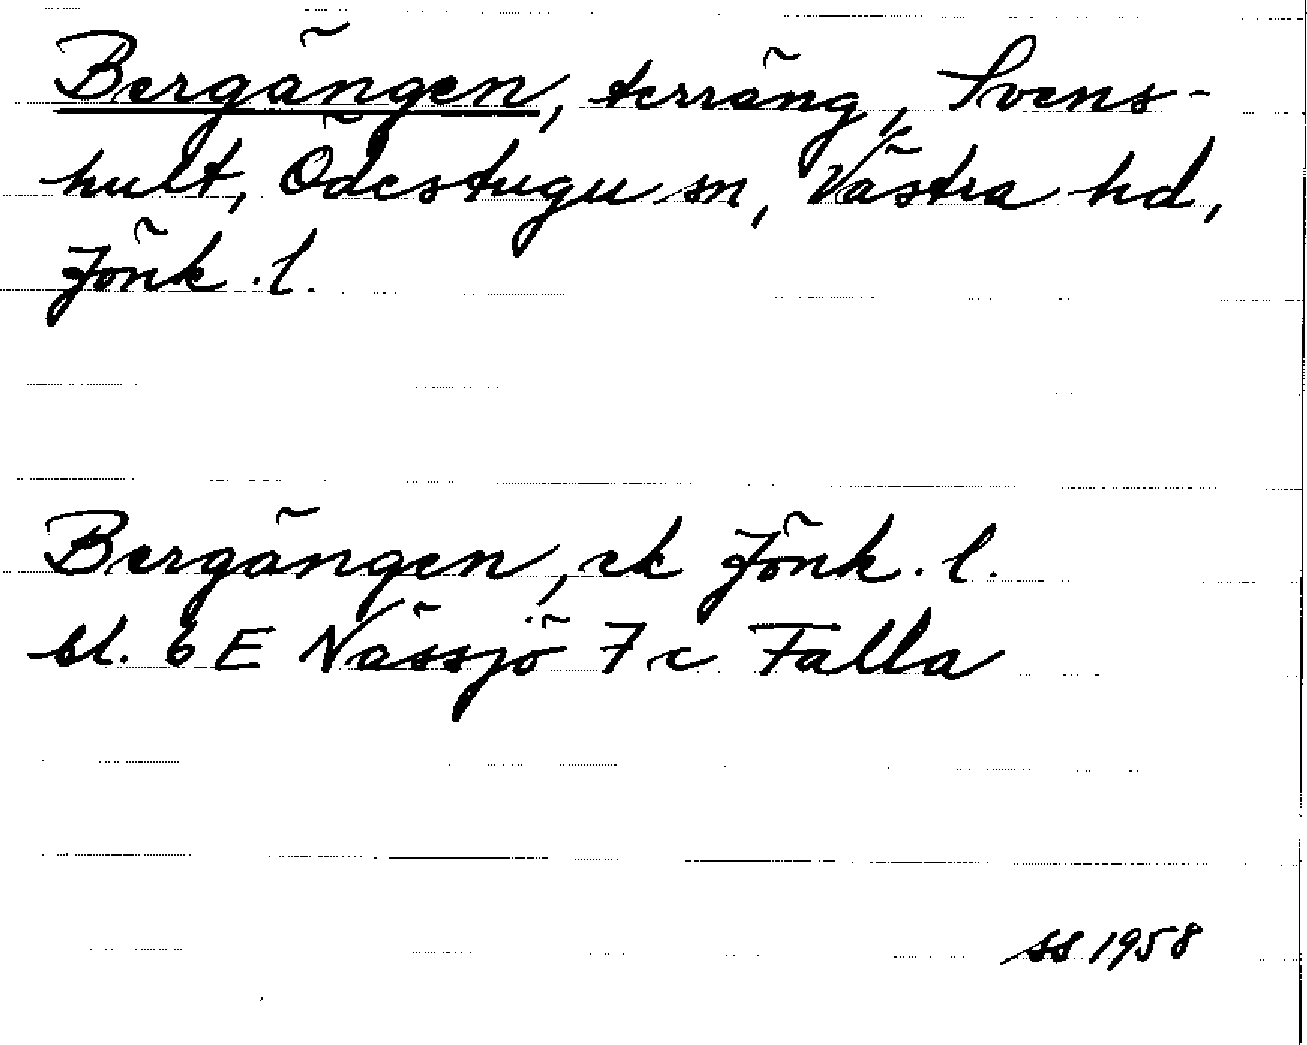 Bergängen, terräng, Svens-
hult, Ödestugu sn, Västra hd,
Jönk. l.
Bergängen, ek Jönk. l.
bl. 6 E Nässjö 7 c Falla
SS 1958